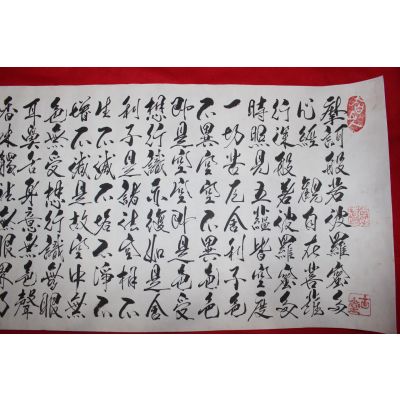 摩訶般若波羅蜜多
心經 觀自在菩薩
行深般若波羅蜜多
時照見五蘊皆空度
一切苦厄舍利子色
不異空空不異色色
即是空空即是色受
想行識亦復如是舍
利子是諸法空相不
生不滅不垢不淨不
增不減是故空中無
色無受想行識無眼
耳鼻舌身意無色聲
香味觸法無眼界乃